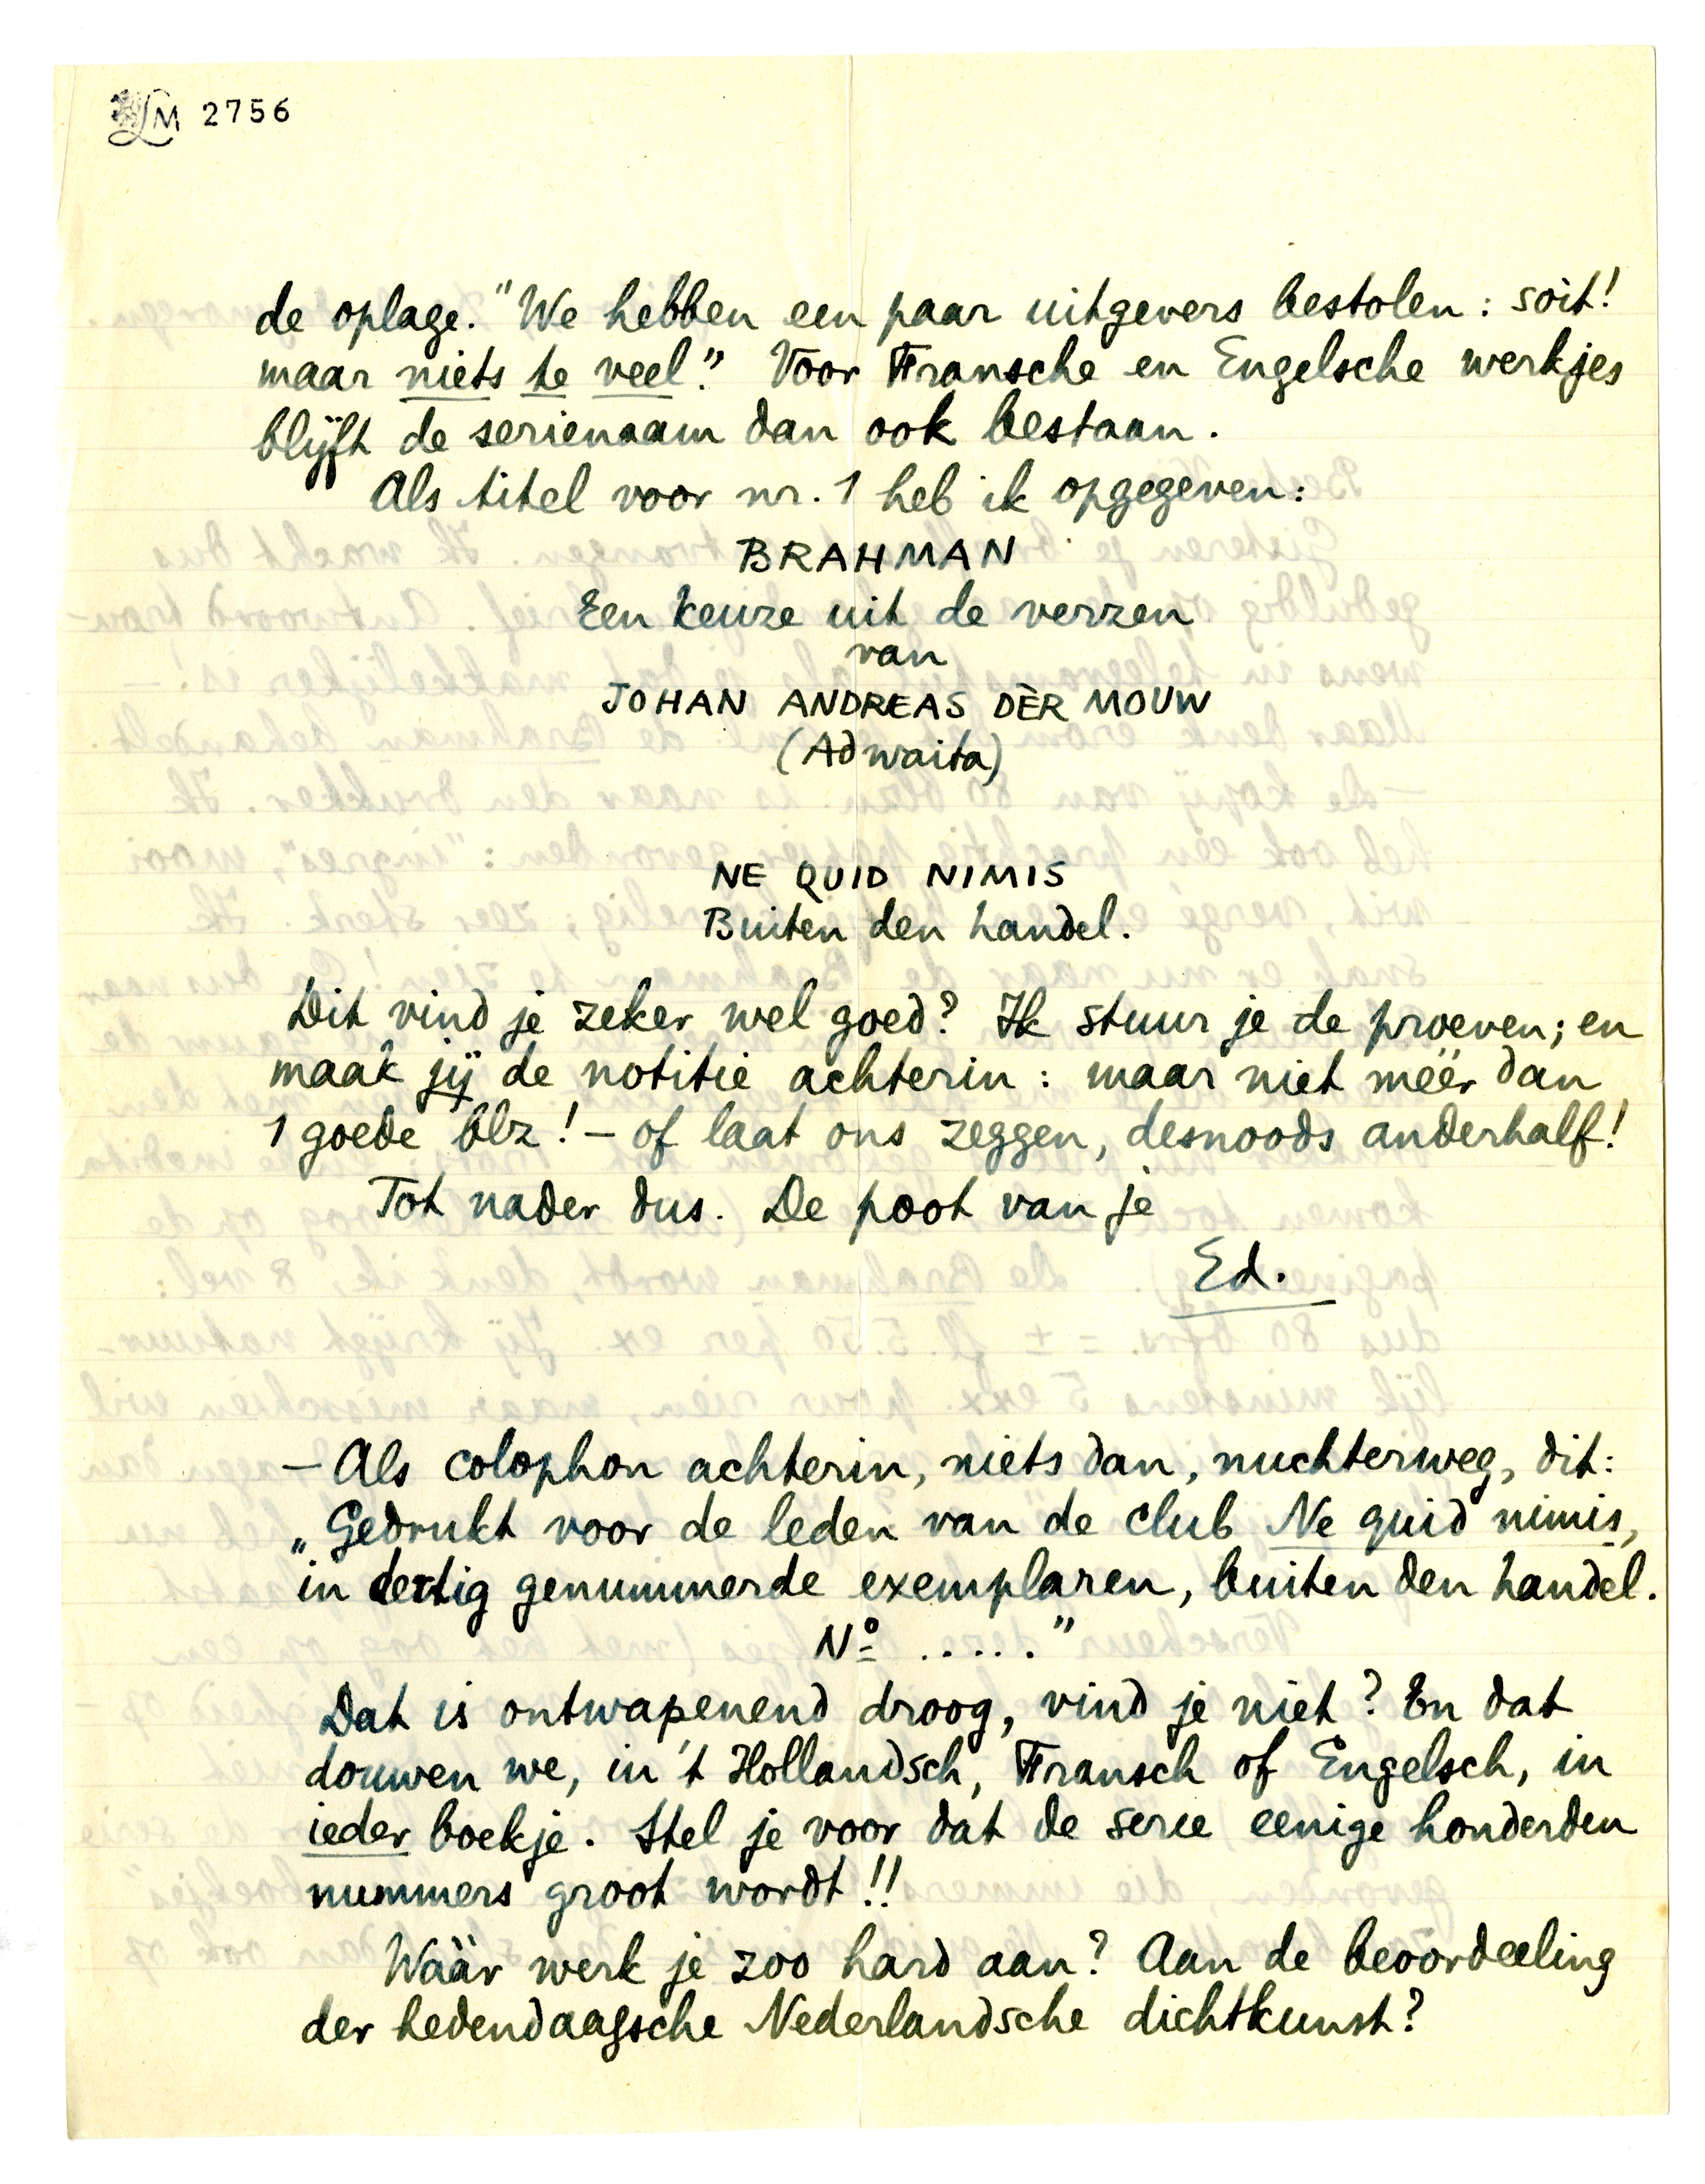 LM 2756
de oplage. "We hebben een paar uitgevers bestolen: soit!
maar niets te veel." Voor Fransche en Engelsche werkjes
blijft de serienaam dan ook bestaan.
Als titel voor nr. 1 heb ik opgegeven:
BRAHMAN
Een keuze uit de verzen
van
JOHAN ANDREAS DÈR MOUW
(Adwaita)
NE QUID NIMIS
Buiten den handel.
Dit vind je zeker wel goed? Ik stuur je de proeven; en
maak jij de notitie achterin: maar niet méér dan
1 goede blz! – of laat ons zeggen, desnoods anderhalf!
Tot nader dus. De poot van je
Ed.
– Als colophon achterin, niets dan, nuchterweg, dit:
„Gedrukt voor de leden van de club Ne quid nimis,
in dertig genummerde exemplaren, buiten den handel.
Nº ....."
Dat is ontwapenend droog, vind je niet? En dat
douwen we, in 't Hollandsch, Fransch of Engelsch, in
ieder boekje. Stel je voor dat de serie eenige honderden
nummers groot wordt!!
Wáár werk je zoo hard aan? Aan de beoordeeling
der hedendaagsche Nederlandsche dichtkunst?